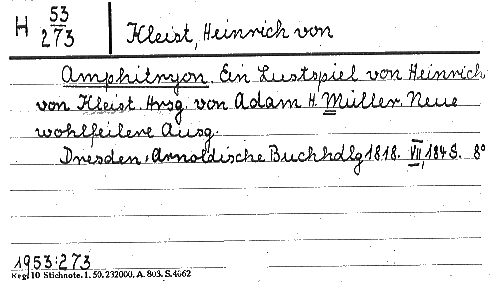 H 53/273 Kleist, Heinrich von
Amphitryon. Ein Lustspiel von Heinrich
von Kleist. Hrsg. von Adam H. Müller. Neue
wohlfeilere Ausg.
Dresden: Arnoldische Buchhdlg 1818. VII, 184 S. 8°
1953:273
Reg. 10 Stichnote. 1. 50. 232000. A. 803. S. 4662